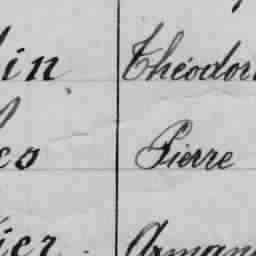 in Théodor
es Pierre
ier Aman